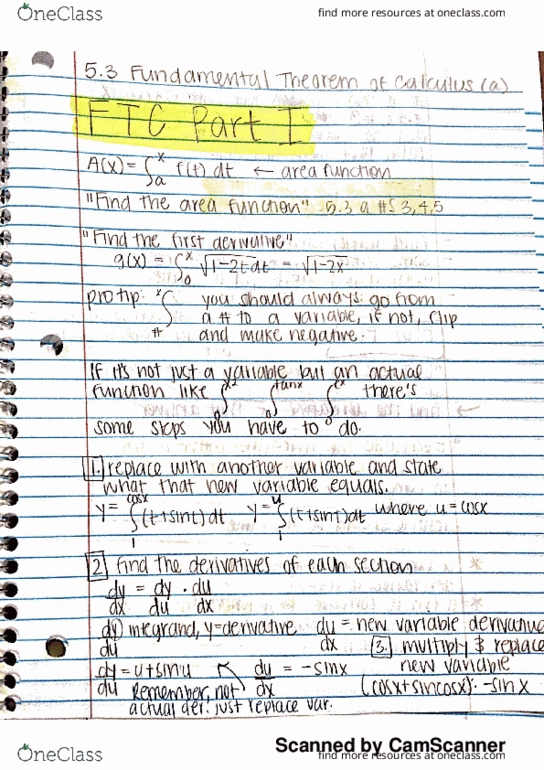 OneClass
find more resources at oneclass.com
5.3 Fundamental Theorem of Calculus (a)
FTC Part I
A(x) = ∫ₐˣ f(t) dt ← area function
"Find the area function" 5.3 a #s 3,4,5
"Find the first derivative"
g(x) = ∫₀ˣ √(1-2t) dt = √(1-2x)
pro tip: ∫ˣ you should always go from
# a # to a variable, if not, flip
and make negative.
If it's not just a variable but an actual
function like ∫₀ˣ² ∫₀ᵗᵃⁿˣ ∫₀ᵉˣ there's
some steps you have to do.
1. replace with another variable and state
what that new variable equals.
y = ∫₁ᶜᵒˢˣ (t+sint) dt y = ∫₁ᵘ (t+sint) dt where u = cosx
2. find the derivatives of each section
dy/dx = dy/du · du/dx
dy/du integrand, y=derivative du/dx = new variable derivative
3. multiply & replace
new variable
dy/du = u+sinu du/dx = -sinx
(cosx+sincosx) · -sinx
Remember, not
actual der. just replace var.
Scanned by CamScanner
OneClass
find more resources at oneclass.com